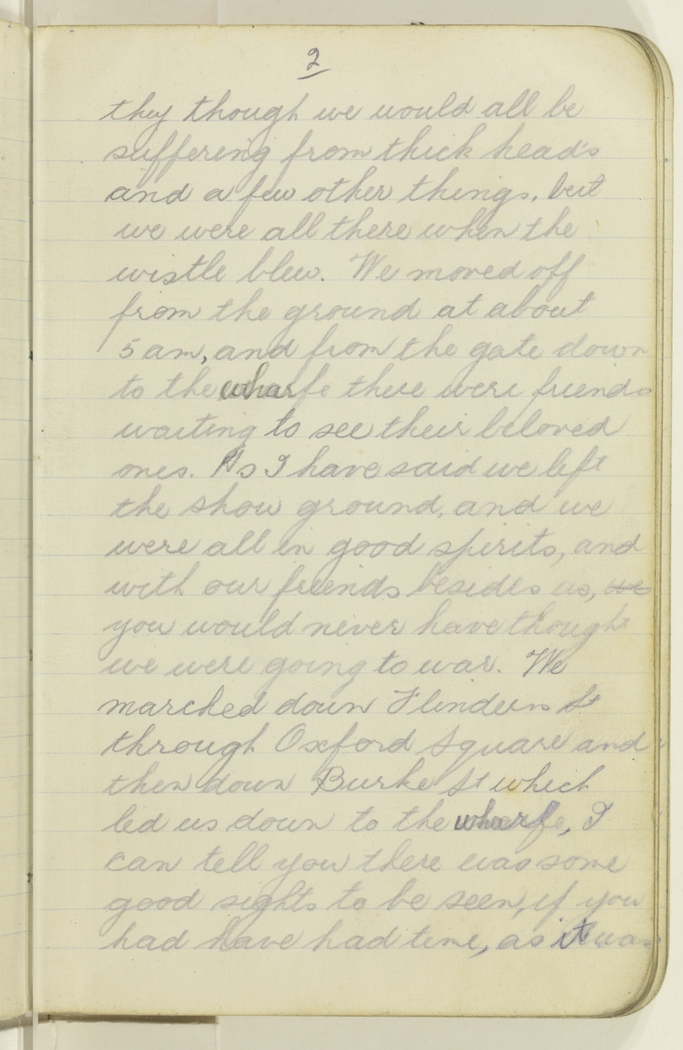 2
they though we would all be
suffering from thick heads
and a few other things, but
we were all there when the
wistle blew. We moved off
from the ground at about
5 am, and from the gate down
to the wharfe there were friends
waiting to see their beloved
ones. As I have said we left
the show ground, and we
were all in good spirits, and
with our friends besides us,
you would never have though
we were going to war. We
marched down Flinders St
through Oxford Square and
then down Burke St which
led us down to the wharfe, I
can tell you there was some
good sights to be seen, if you
had have had time, as it was